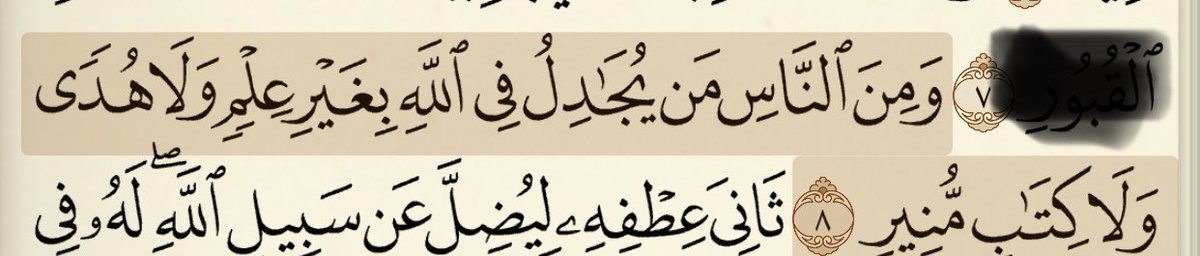 ٱلْقُبُورِ ٧ وَمِنَ ٱلنَّاسِ مَن يُجَٰدِلُ فِى ٱللَّهِ بِغَيْرِ عِلْمٍ وَلَا هُدًى
وَلَا كِتَٰبٍ مُّنِيرٍ ٨ ثَانِىَ عِطْفِهِۦ لِيُضِلَّ عَن سَبِيلِ ٱللَّهِ ۖ لَهُۥ فِى